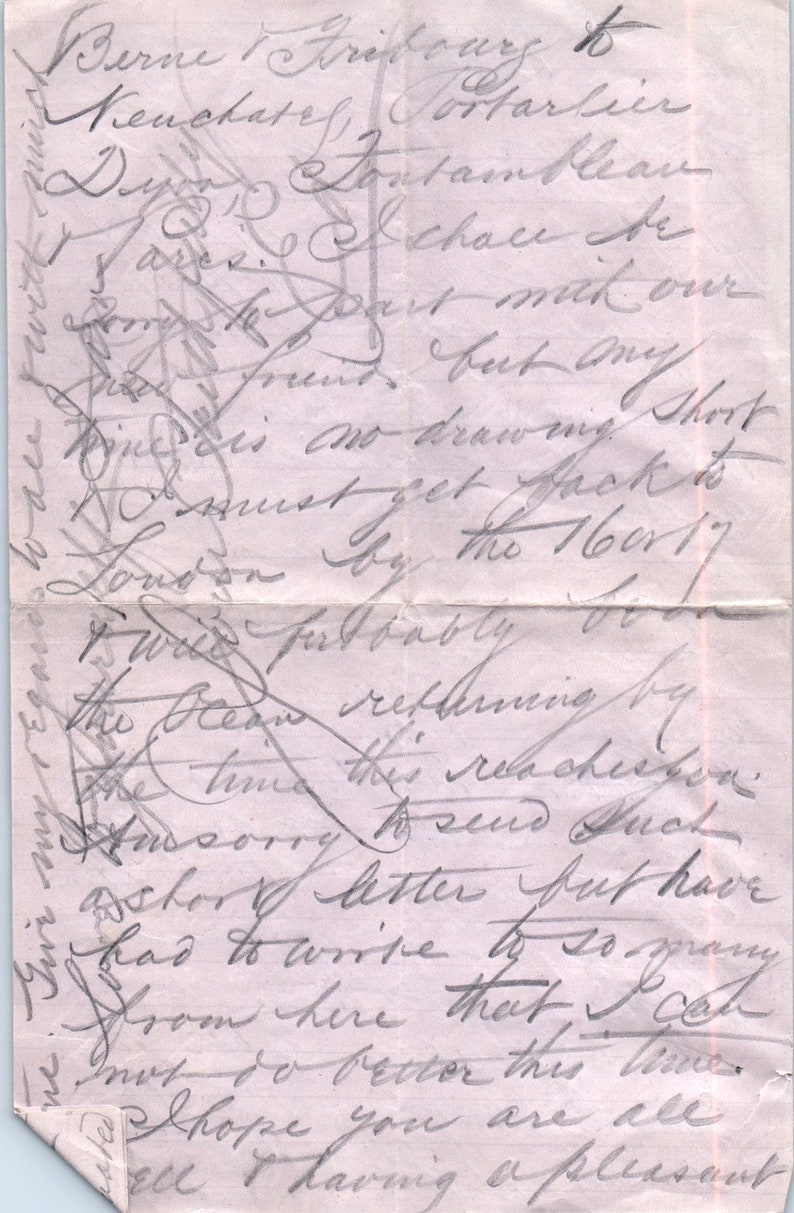 Berne & Fribourg to
Neuchatel, Pontarlier
Dijon, Fontainbleau
& Paris. I shall be
sorry to part with our
new friends but my
time is no drawing short
& I must get back to
London by the 16 or 17
& will probably be on
the Ocean returning by
the time this reaches you.
Am sorry to send such
a short letter but have
had to write to so many
from here that I can
not do better this time.
I hope you are all
ell & having a pleasant
me. Give my regards to all & with much